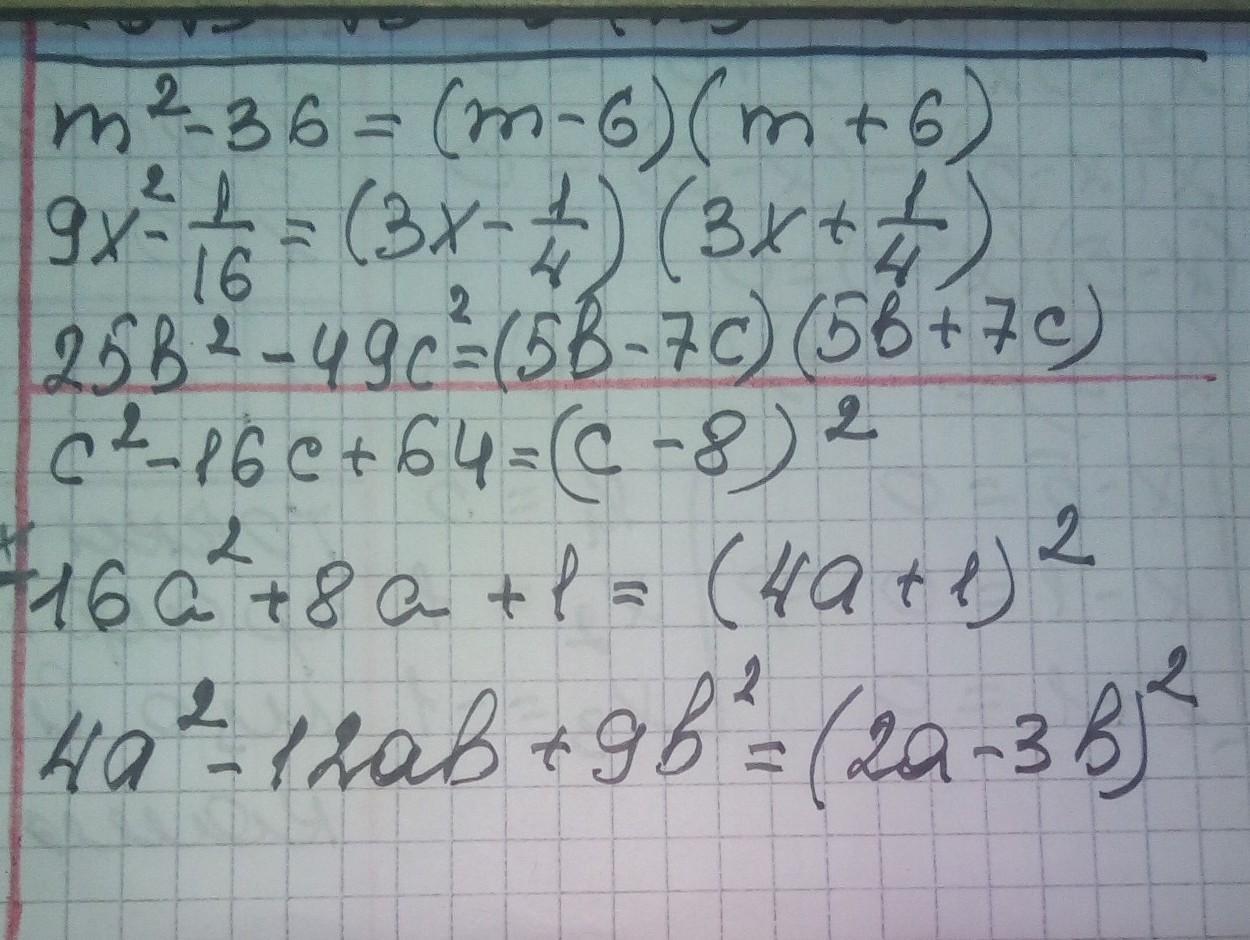 m² - 36 = (m - 6)(m + 6)
9x² - 1/16 = (3x - 1/4)(3x + 1/4)
25b² - 49c² = (5b - 7c)(5b + 7c)
c² - 16c + 64 = (c - 8)²
16a² + 8a + 1 = (4a + 1)²
4a² - 12ab + 9b² = (2a - 3b)²